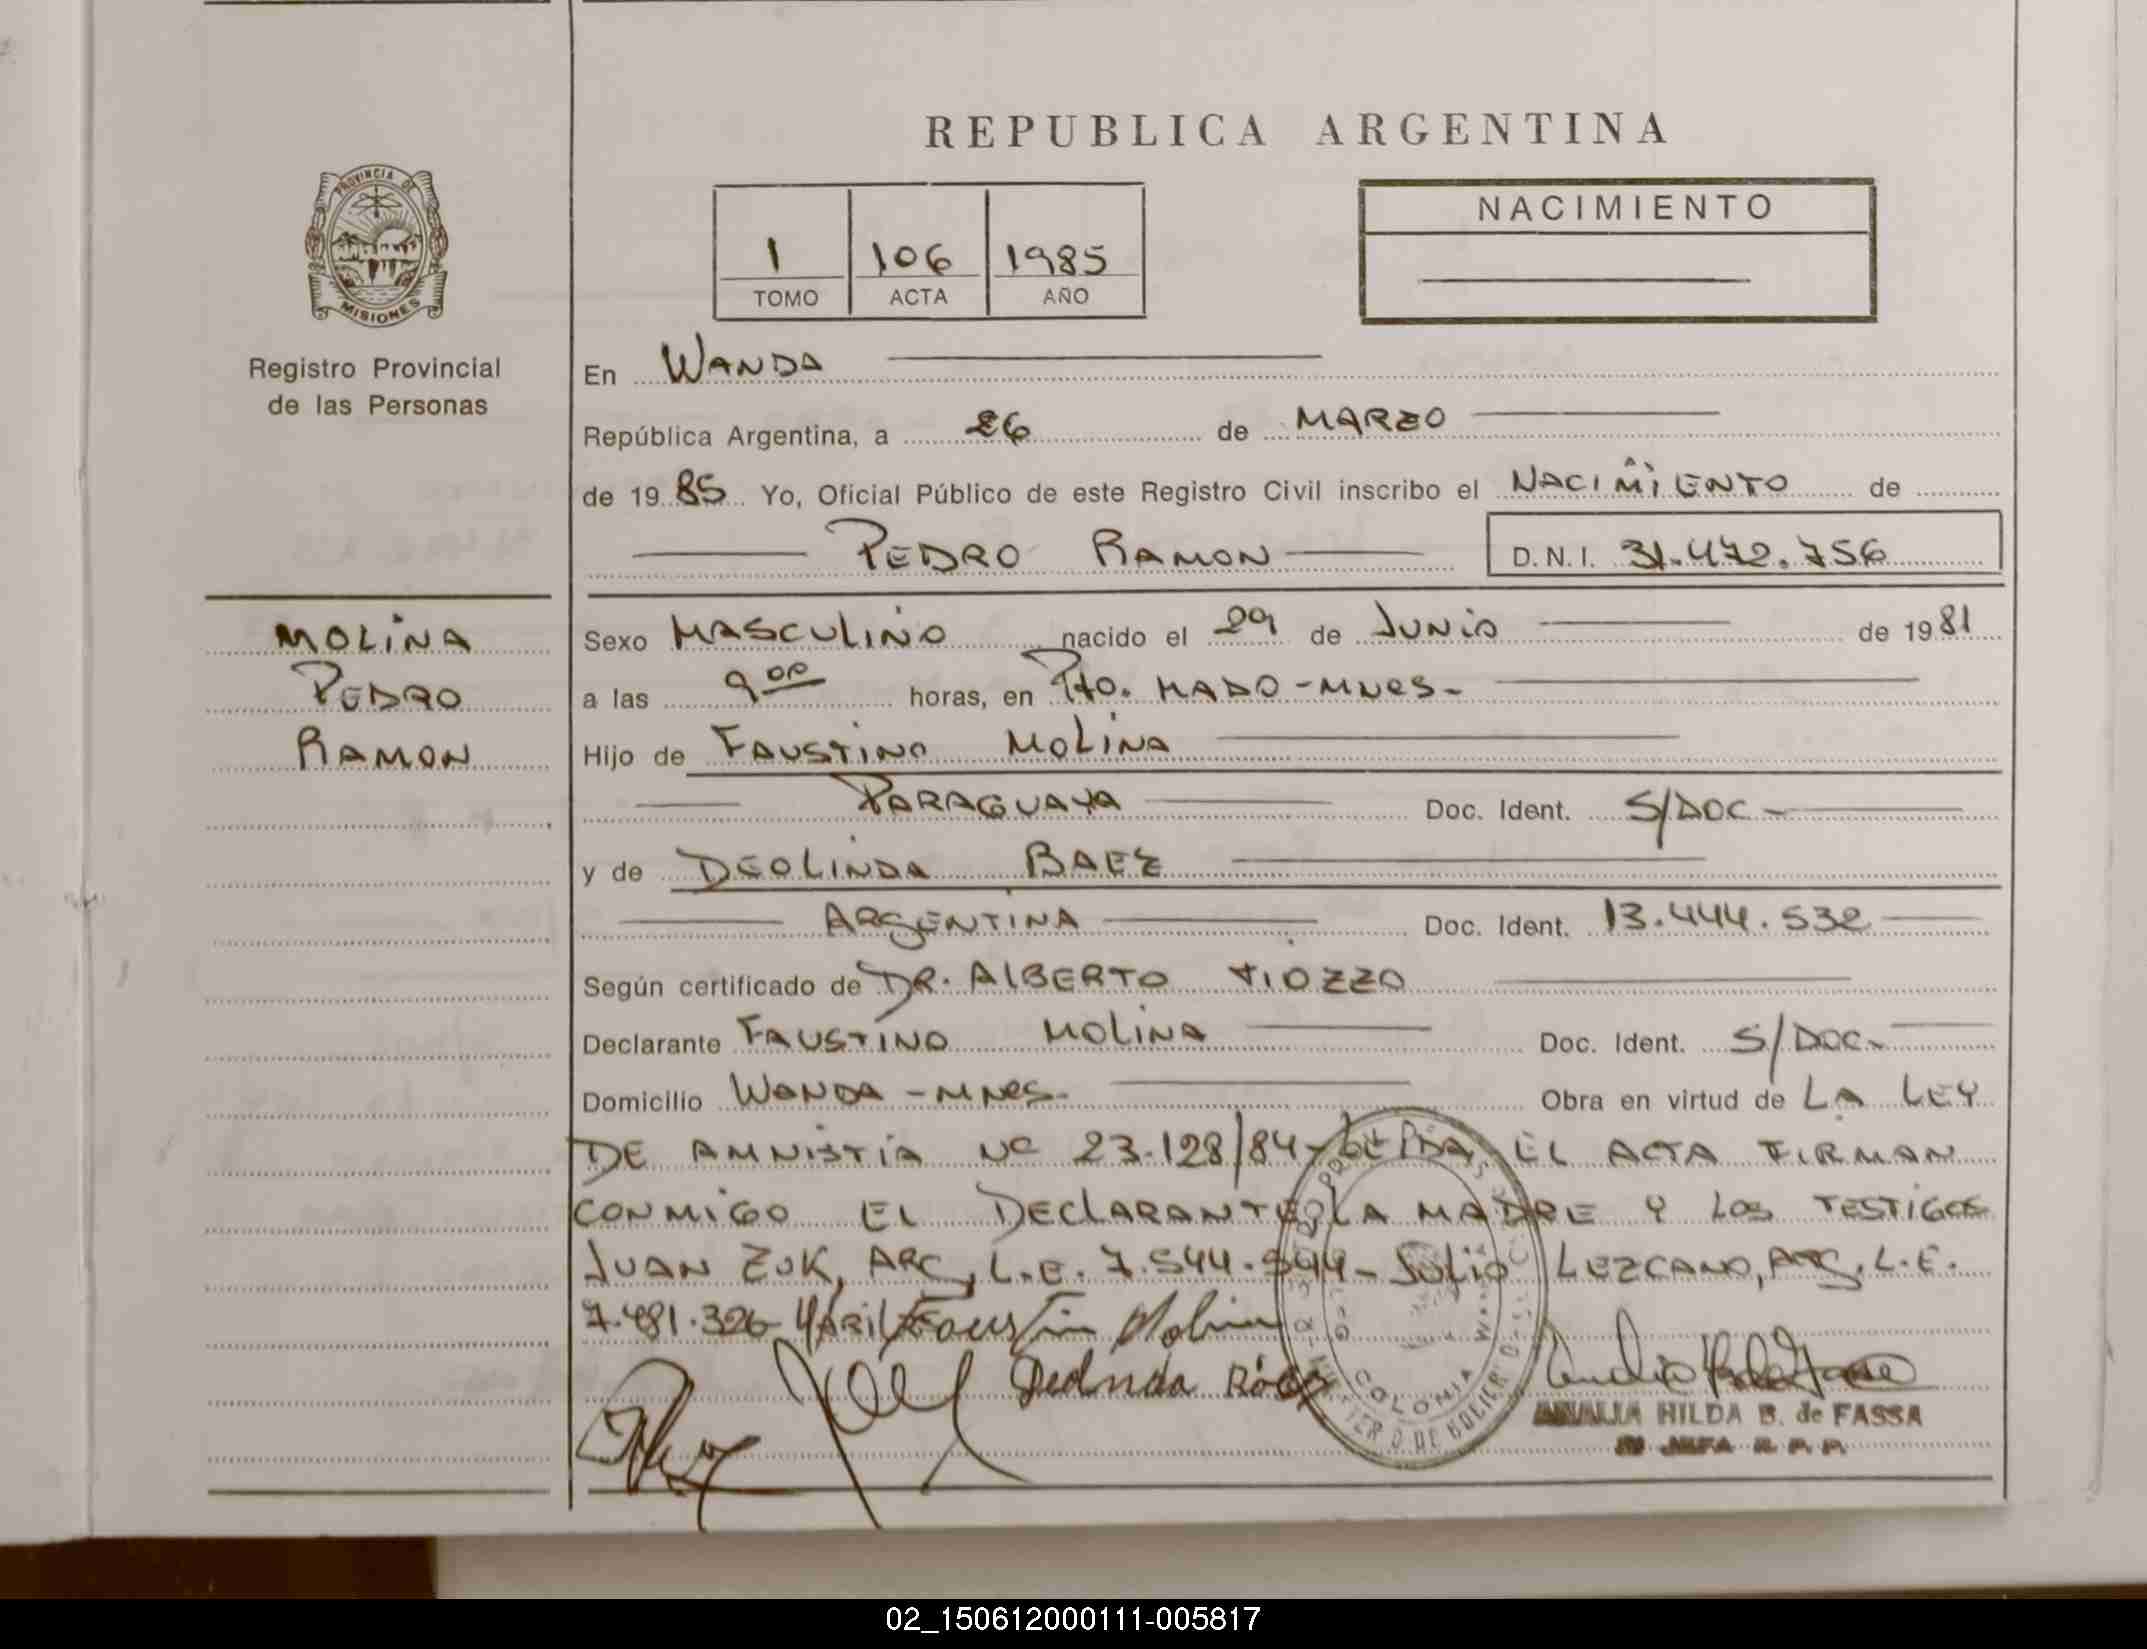 REPUBLICA ARGENTINA
PROVINCIA DE
MISIONES
Registro Provincial
de las Personas
1 106 1985
TOMO ACTA AÑO
NACIMIENTO
En WANDA
República Argentina, a 26 de MARZO
de 1985 Yo, Oficial Público de este Registro Civil inscribo el NACIMIENTO de
PEDRO RAMON D.N.I. 31.472.756
MOLINA
PEDRO
RAMON
Sexo MASCULINO nacido el 29 de JUNIO de 1981
a las 9 00 horas, en Pto. MADO-MNES-
Hijo de FAUSTINO MOLINA
PARAGUAYA Doc. Ident. S/DOC-
y de DEOLINDA BAEZ
ARGENTINA Doc. Ident. 13.444.532
Según certificado de DR. ALBERTO TIOZZO
Declarante FAUSTINO MOLINA Doc. Ident. S/DOC-
Domicilio WANDA-MNES- Obra en virtud de LA LEY
DE AMNISTIA Nº 23.128/84-LEIDA EL ACTA FIRMAN
CONMIGO EL DECLARANTE, LA MADRE Y LOS TESTIGOS
JUAN ZUK, ARG, L.E. 7.544.544- JULIO LEZCANO, ARG, L.E.
7.481.326- Faustin Molina
Deolinda
COLONIA WANDA
ANALIA HILDA B. de FASSA
JEFA R. P. P.
02_150612000111-005817